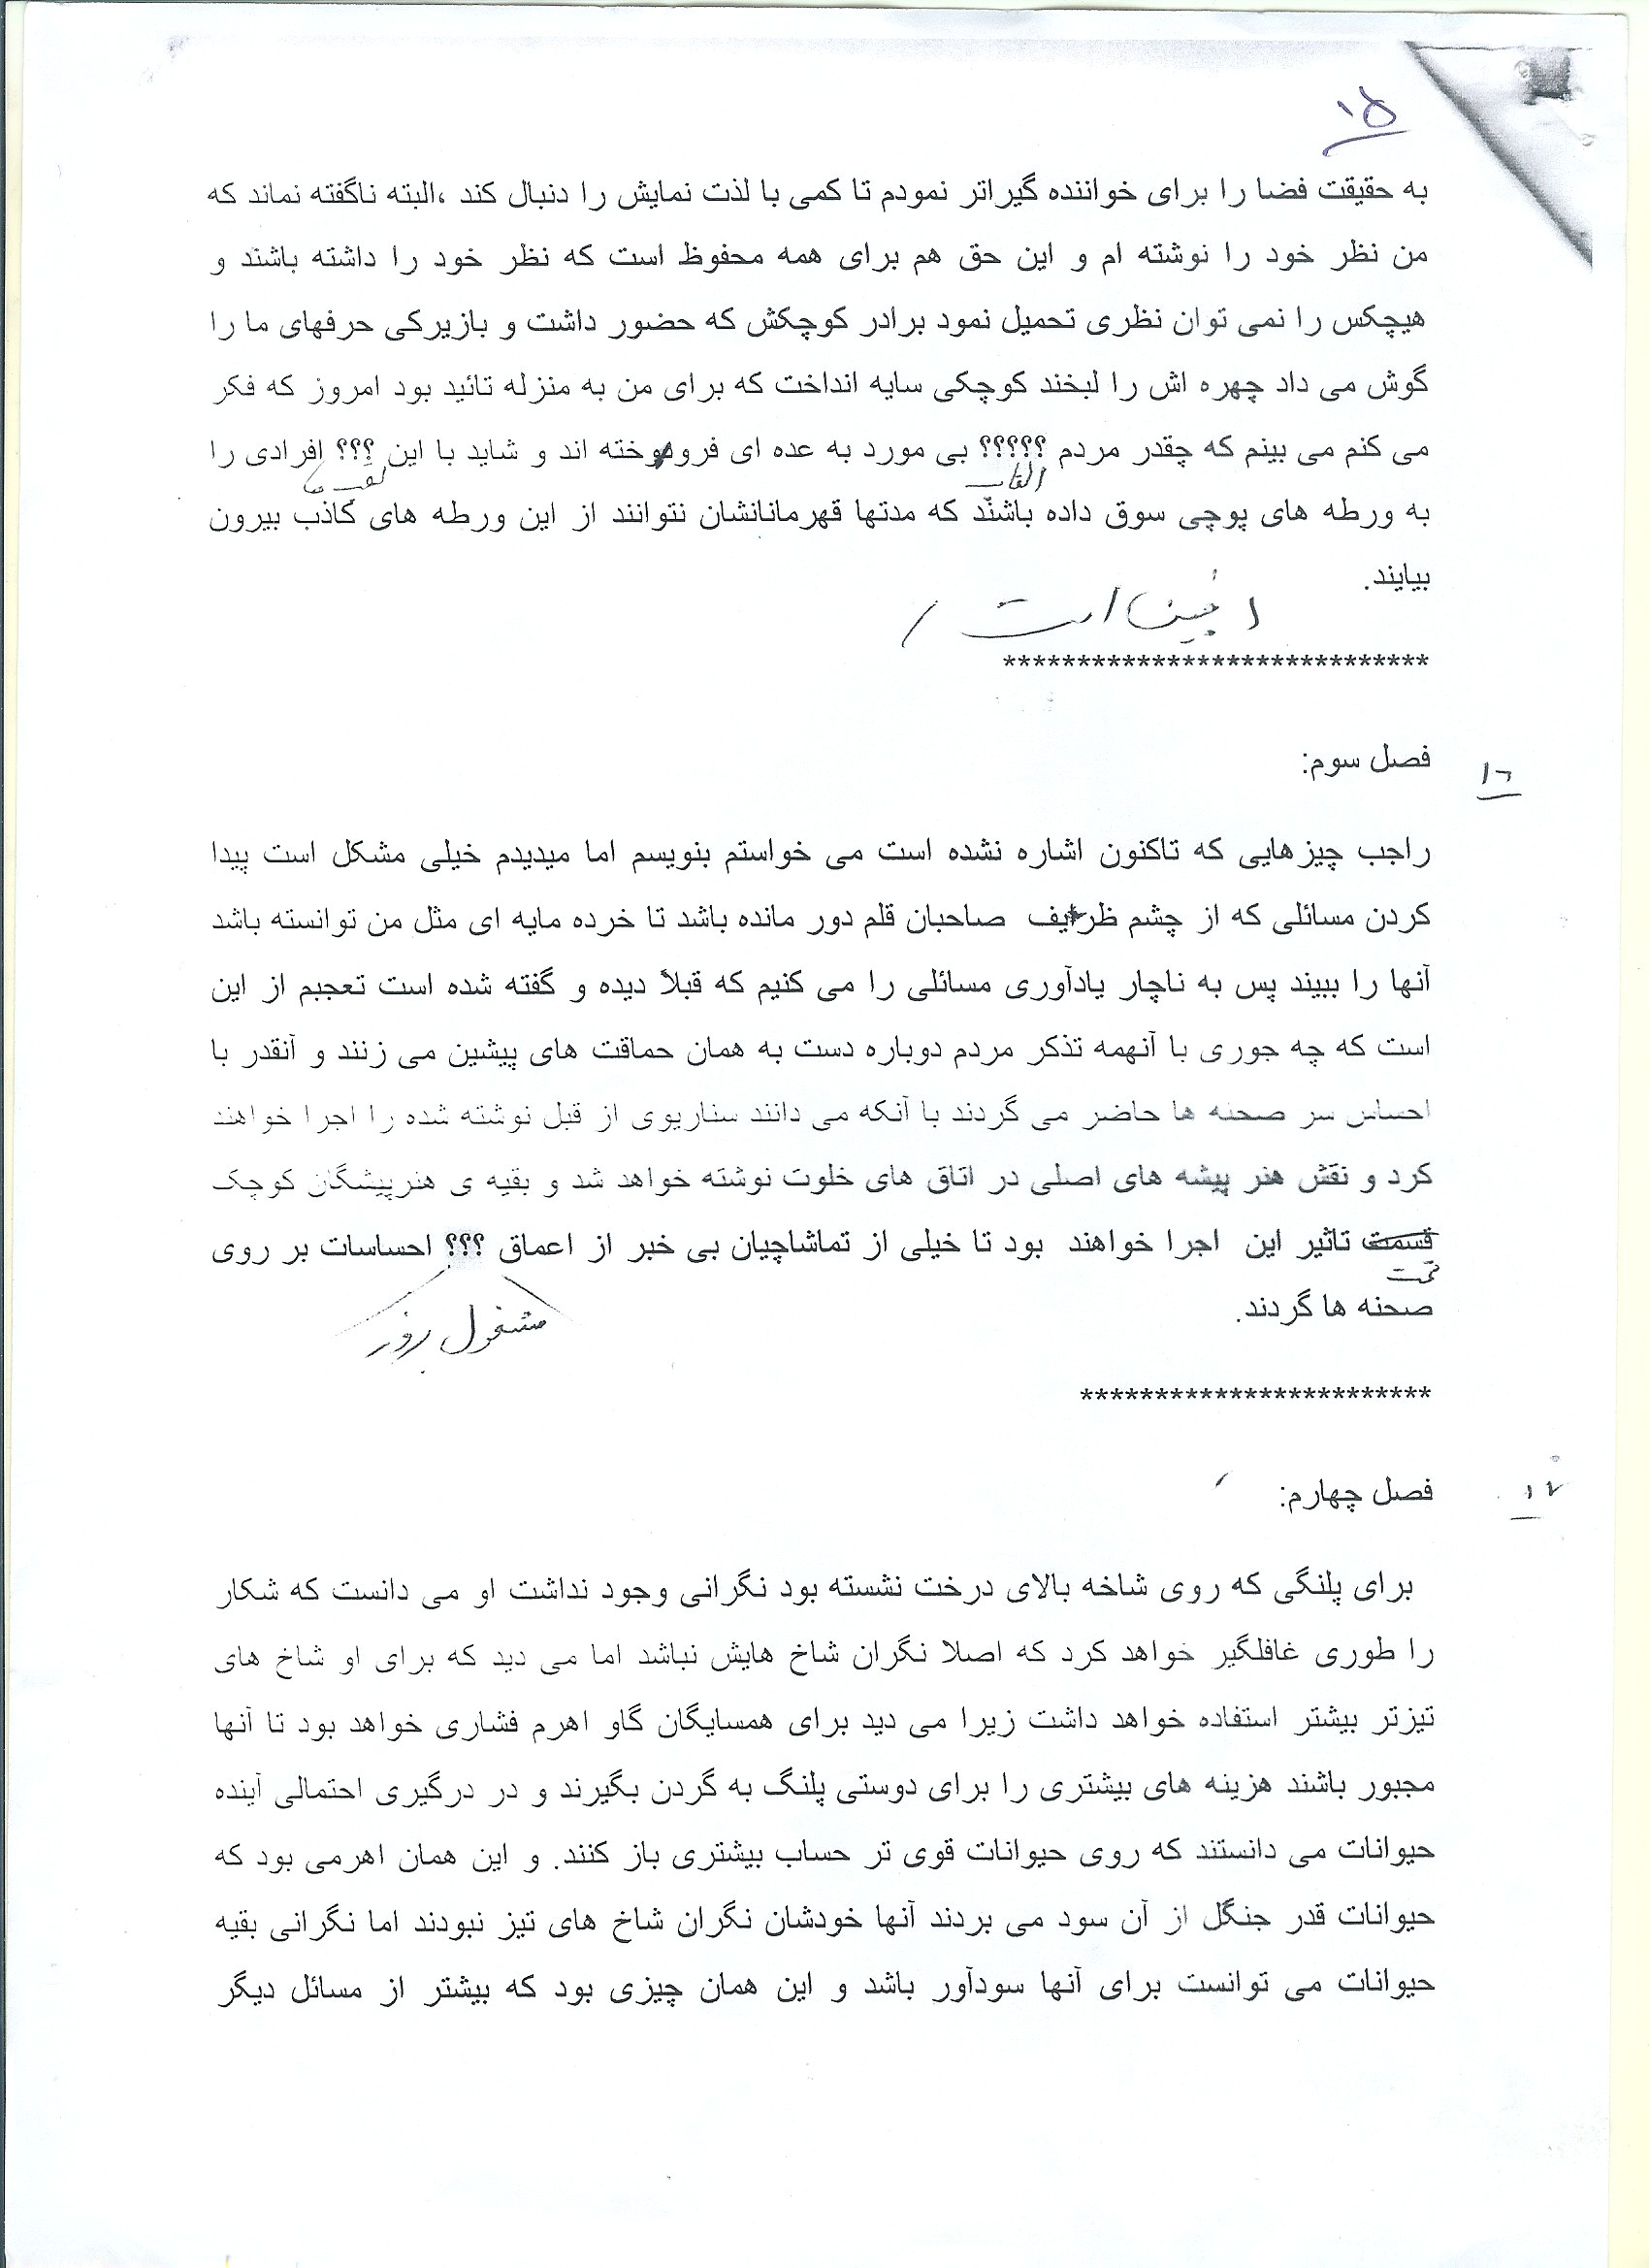 ۱۵
به حقیقت فضا را برای خواننده گیراتر نمودم تا کمی با لذت نمایش را دنبال کند ،البته ناگفته نماند که
من نظر خود را نوشته ام و این حق هم برای همه محفوظ است که نظر خود را داشته باشند و
هیچکس را نمی توان نظری تحمیل نمود برادر کوچکش که حضور داشت و بازیرکی حرفهای ما را
گوش می داد چهره اش را لبخند کوچکی سایه انداخت که برای من به منزله تائید بود امروز که فکر
می کنم می بینم که چقدر مردم ؟؟؟؟؟ بی مورد به عده ای فروخته اند و شاید با این ؟؟؟ افرادی را
القاب
به ورطه های پوچی سوق داده باشند که مدتها قهرمانانشان نتوانند از این ورطه های کاذب بیرون
بیایند.
*****************************
۱۶
فصل سوم:
راجب چیزهایی که تاکنون اشاره نشده است می خواستم بنویسم اما میدیدم خیلی مشکل است پیدا
کردن مسائلی که از چشم ظرایف صاحبان قلم دور مانده باشد تا خرده مایه ای مثل من توانسته باشد
آنها را ببیند پس به ناچار یادآوری مسائلی را می کنیم که قبلاً دیده و گفته شده است تعجبم از این
است که چه جوری با آنهمه تذکر مردم دوباره دست به همان حماقت های پیشین می زنند و آنقدر با
احساس سر صحنه ها حاضر می گردند با آنکه می دانند سناریوی از قبل نوشته شده را اجرا خواهند
کرد و نقش هنر پیشه های اصلی در اتاق های خلوت نوشته خواهد شد و بقیه ی هنرپیشگان کوچک
قسمت تاثیر این اجرا خواهند بود تا خیلی از تماشاچیان بی خبر از اعماق ؟؟؟ احساسات بر روی
تحت
صحنه ها گردند.
مشغول بروز
************************
۱۷
فصل چهارم:
برای پلنگی که روی شاخه بالای درخت نشسته بود نگرانی وجود نداشت او می دانست که شکار
را طوری غافلگیر خواهد کرد که اصلا نگران شاخ هایش نباشد اما می دید که برای او شاخ های
تیزتر بیشتر استفاده خواهد داشت زیرا می دید برای همسایگان گاو اهرم فشاری خواهد بود تا آنها
مجبور باشند هزینه های بیشتری را برای دوستی پلنگ به گردن بگیرند و در درگیری احتمالی آینده
حیوانات می دانستند که روی حیوانات قوی تر حساب بیشتری باز کنند. و این همان اهرمی بود که
حیوانات قدر جنگل از آن سود می بردند آنها خودشان نگران شاخ های تیز نبودند اما نگرانی بقیه
حیوانات می توانست برای آنها سودآور باشد و این همان چیزی بود که بیشتر از مسائل دیگر